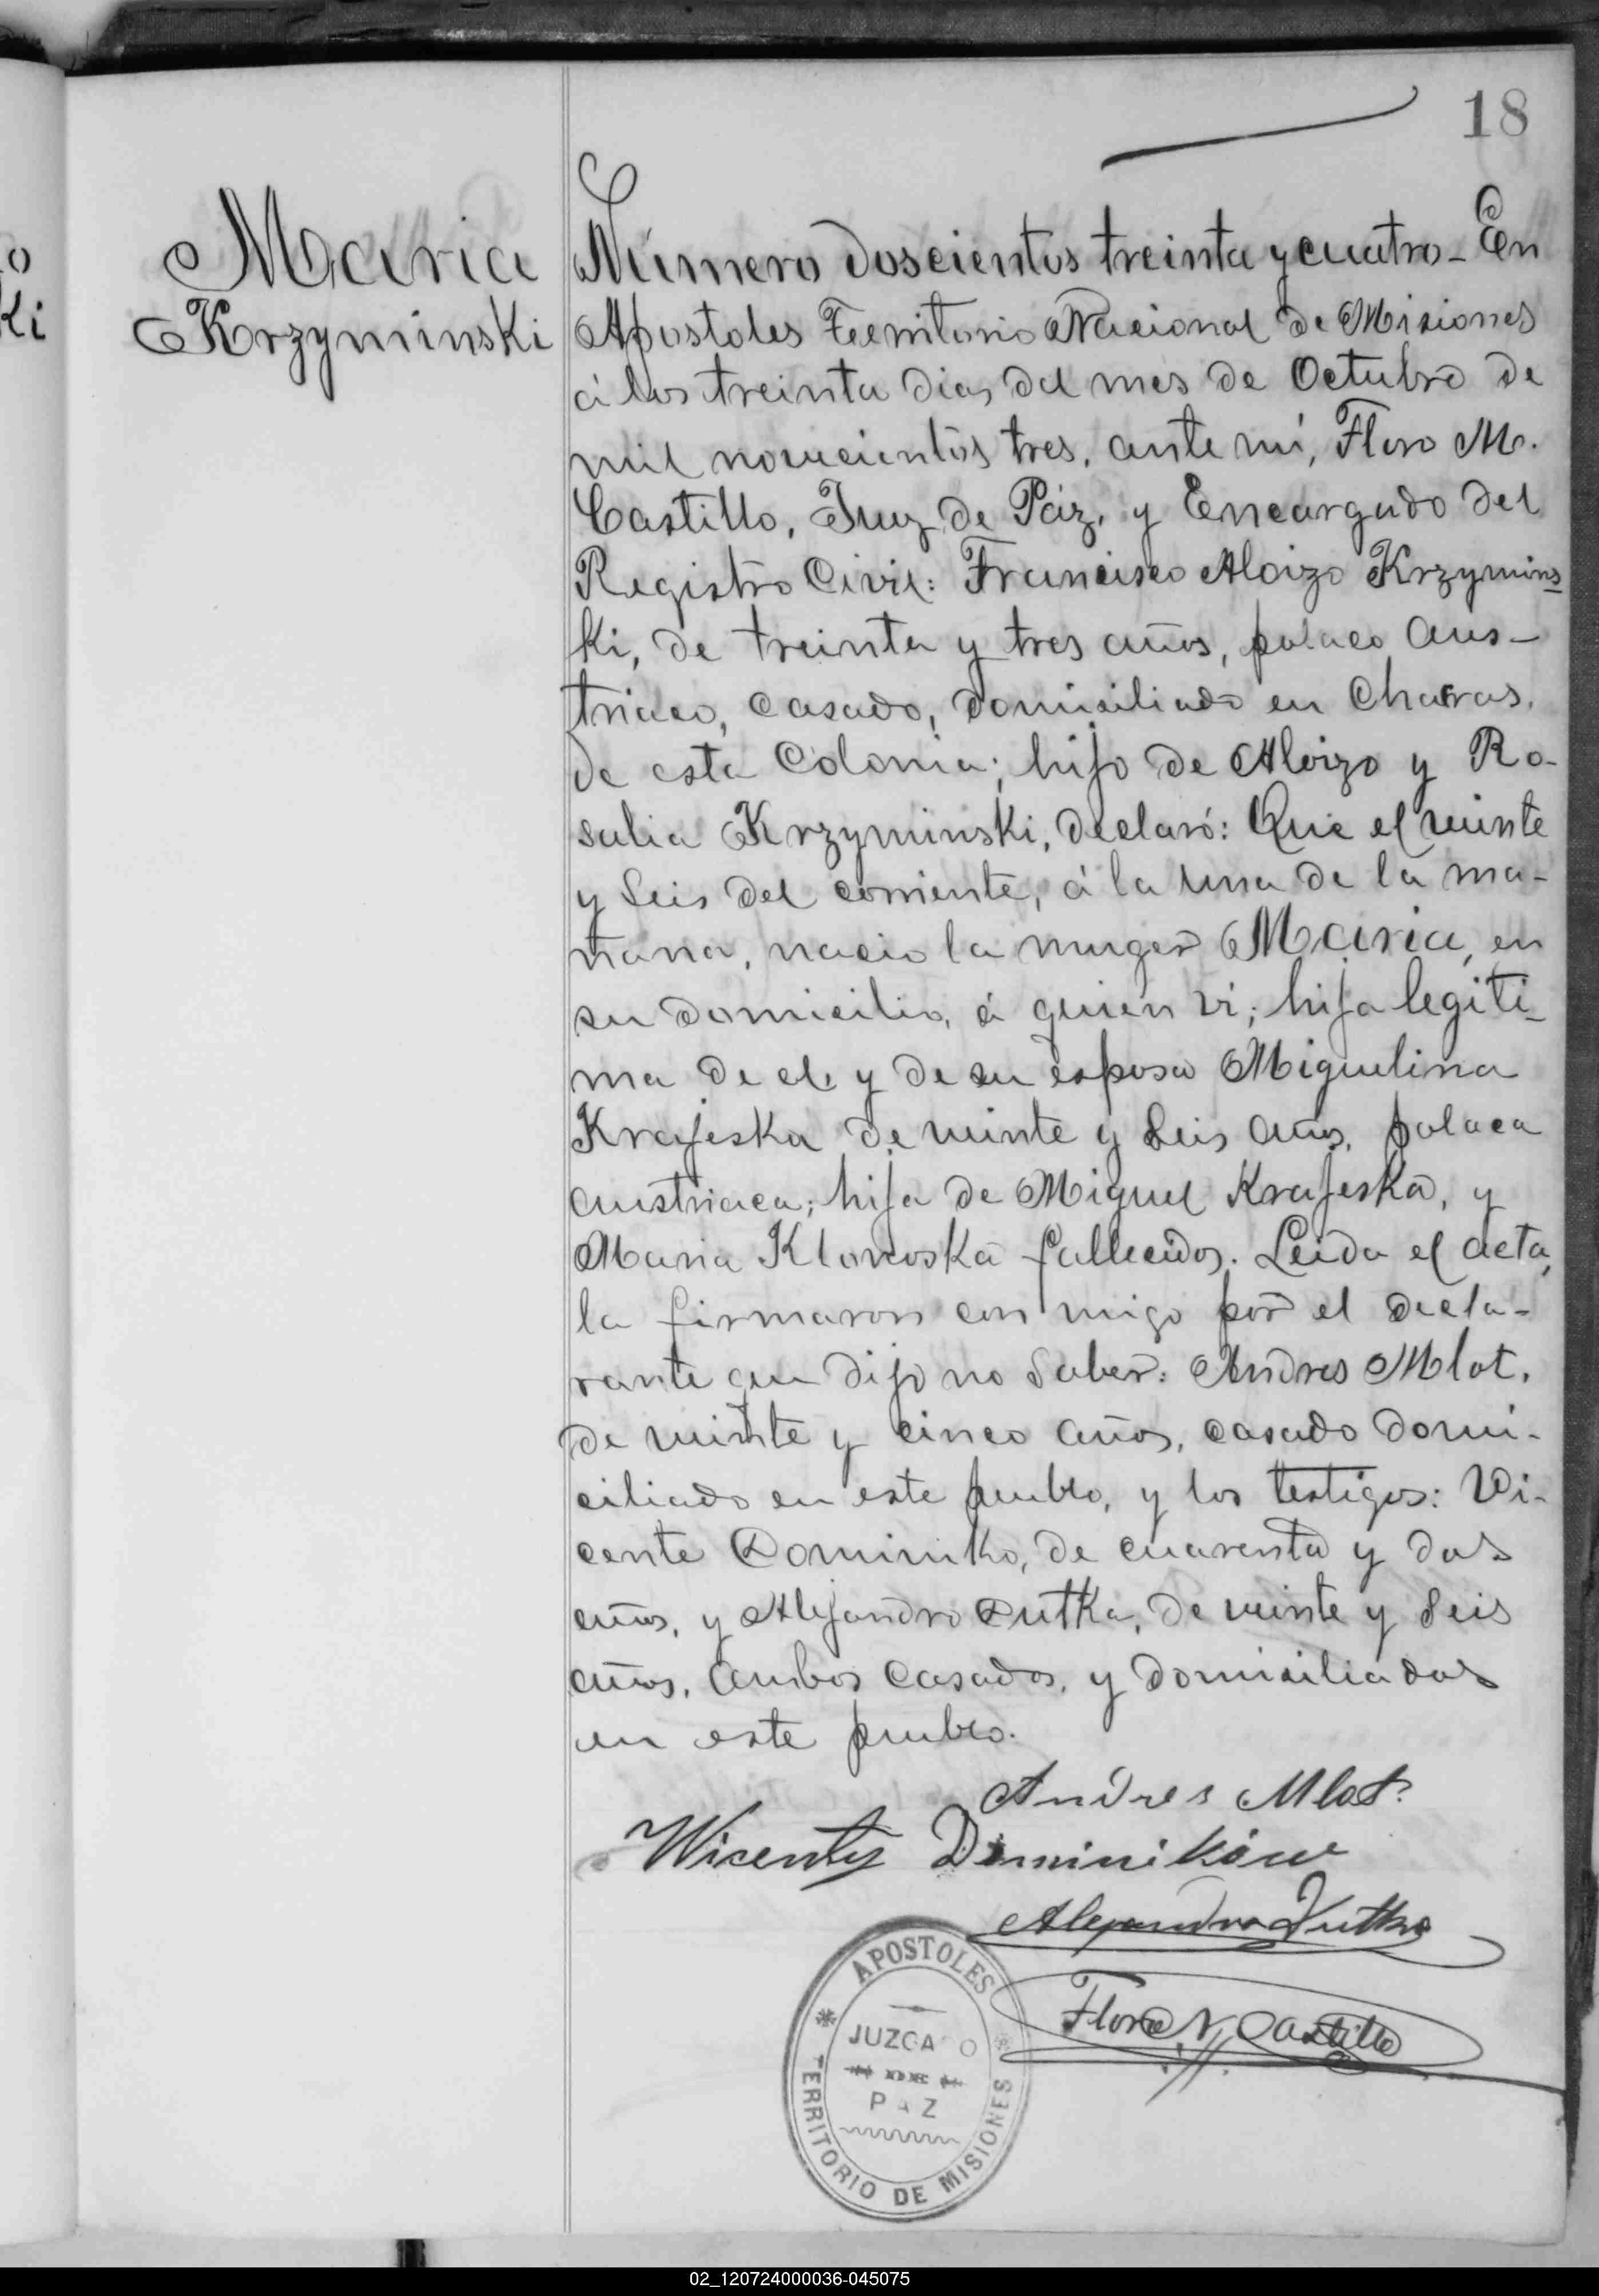 18
o
ki
Maria
Krzyminski
Número doscientos treinta y cuatro- En
Apostoles Territorio Nacional de Misiones
á los treinta dias del mes de Octubre de
mil novecientos tres, ante mí, Floro M.
Castillo, Juez de Páz, y Encargado del
Registro Civil: Francisco Aloizo Krzymins=
ki, de treinta y tres años, polaco aus-
triaco, casado, domiciliado en Chacras,
de esta Colonia; hijo de Aloizo y Ro-
salia Krzyminski, declaró: Que el veinte
y seis del corriente, á la una de la ma-
ñana, nacio la muger Maria, en
su domicilio, á quien ví; hija legiti-
ma de el y de su esposa Miguelina
Krajeska de veinte y seis años, polaca
austriaca; hija de Miguel Krajeska, y
Maria Klonoska fallecidos. Leida el acta,
la firmaron con migo por el decla-
rante que dijo no saber: Andres Mlot,
de veinte y cinco años, casado domi-
ciliado en este pueblo, y los testigos: Vi-
cente Dominiko, de cuarenta y dos
años, y Alejandro Dutka, de veinte y seis
años, ambos casados, y domiciliados
en este pueblo.
Andres Mlot.
Wicenty Dominików
Alejandro Dutka
Floro M. Castillo
APOSTOLES
JUZGADO
DE
PAZ
TERRITORIO DE MISIONES
02_120724000036-045075